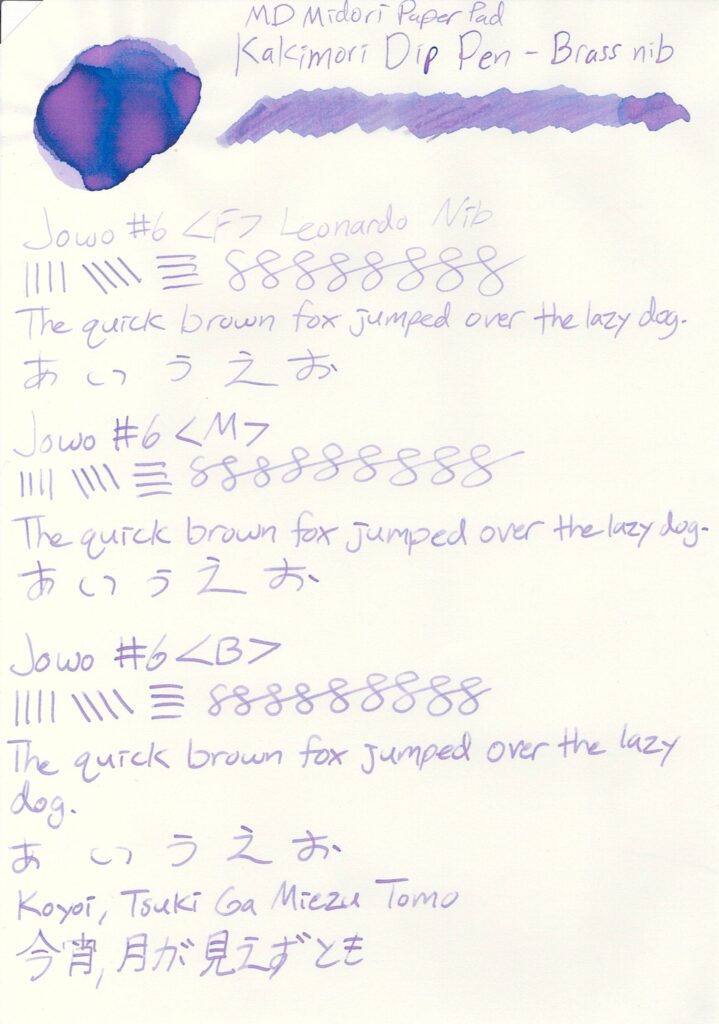 MD Midori Paper Pad
Kakimori Dip Pen - Brass nib
Jowo #6 <F> Leonardo Nib
The quick brown fox jumped over the lazy dog.
あ い う え お
Jowo #6 <M>
The quick brown fox jumped over the lazy dog.
あ い う え お
Jowo #6 <B>
The quick brown fox jumped over the lazy
dog.
あ い う え お
Koyoi, Tsuki Ga Miezu Tomo
今宵, 月が見えずとも